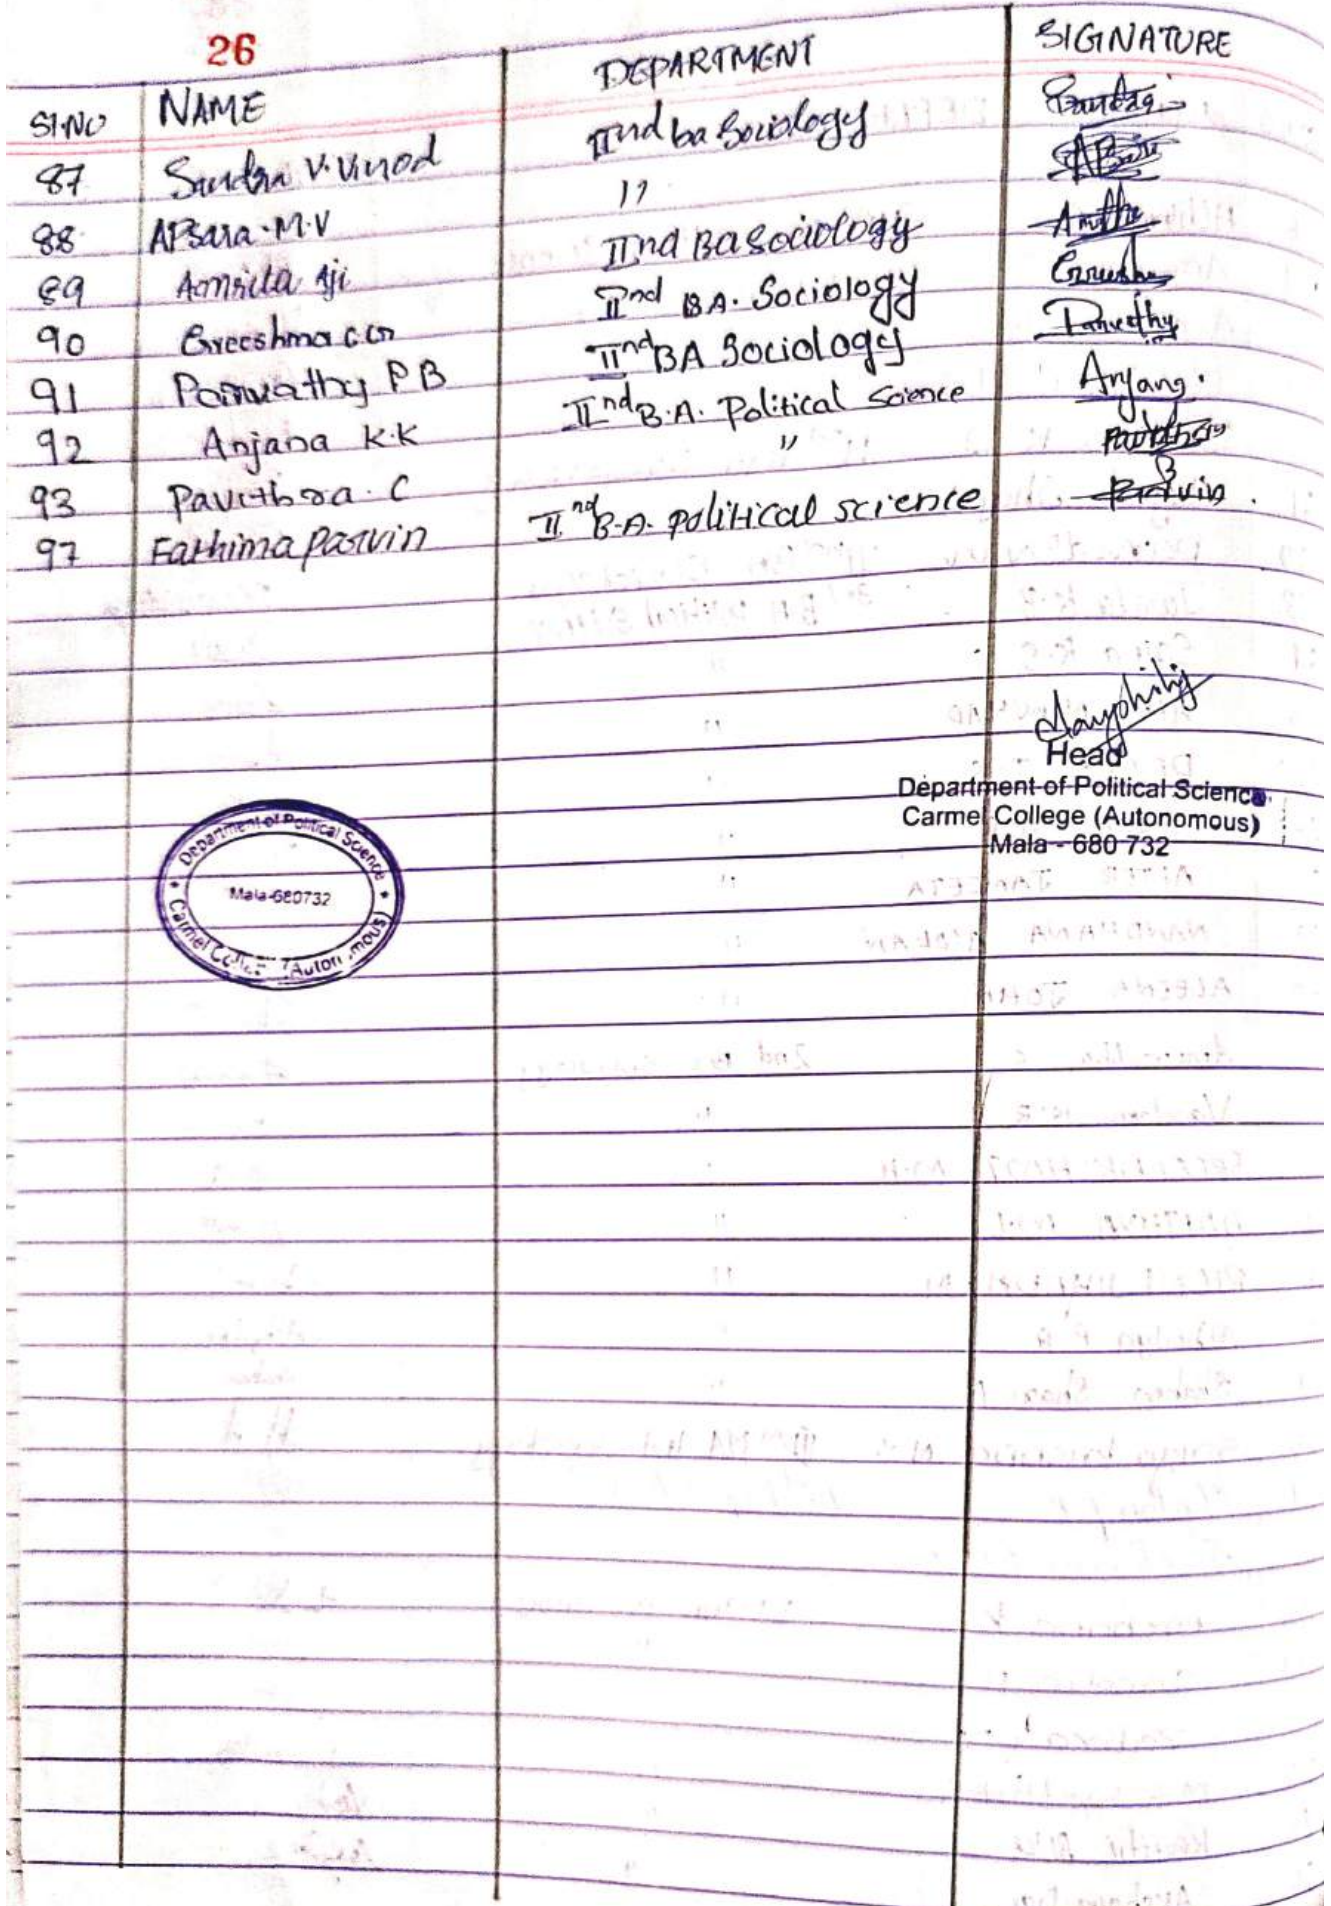 26
SI.NO NAME DEPARTMENT SIGNATURE
87 Sandra V. Vinod IInd ba Sociology
88 APsara.M.V "
89 Amrita Aji IInd BA Sociology
90 Greeshma C.G IInd BA. Sociology
91 Parvathy P B IInd BA Sociology Parvathy
92 Anjana K.K IInd B.A. Political Science Anjana.
93 Pavithra. C "
97 Fathima Parvin IInd B.A. political science Parvin.
Head
Department of Political Science
Carmel College (Autonomous)
Mala - 680 732
Department of Political Science
Mala-680732
Carmel College (Autonomous)